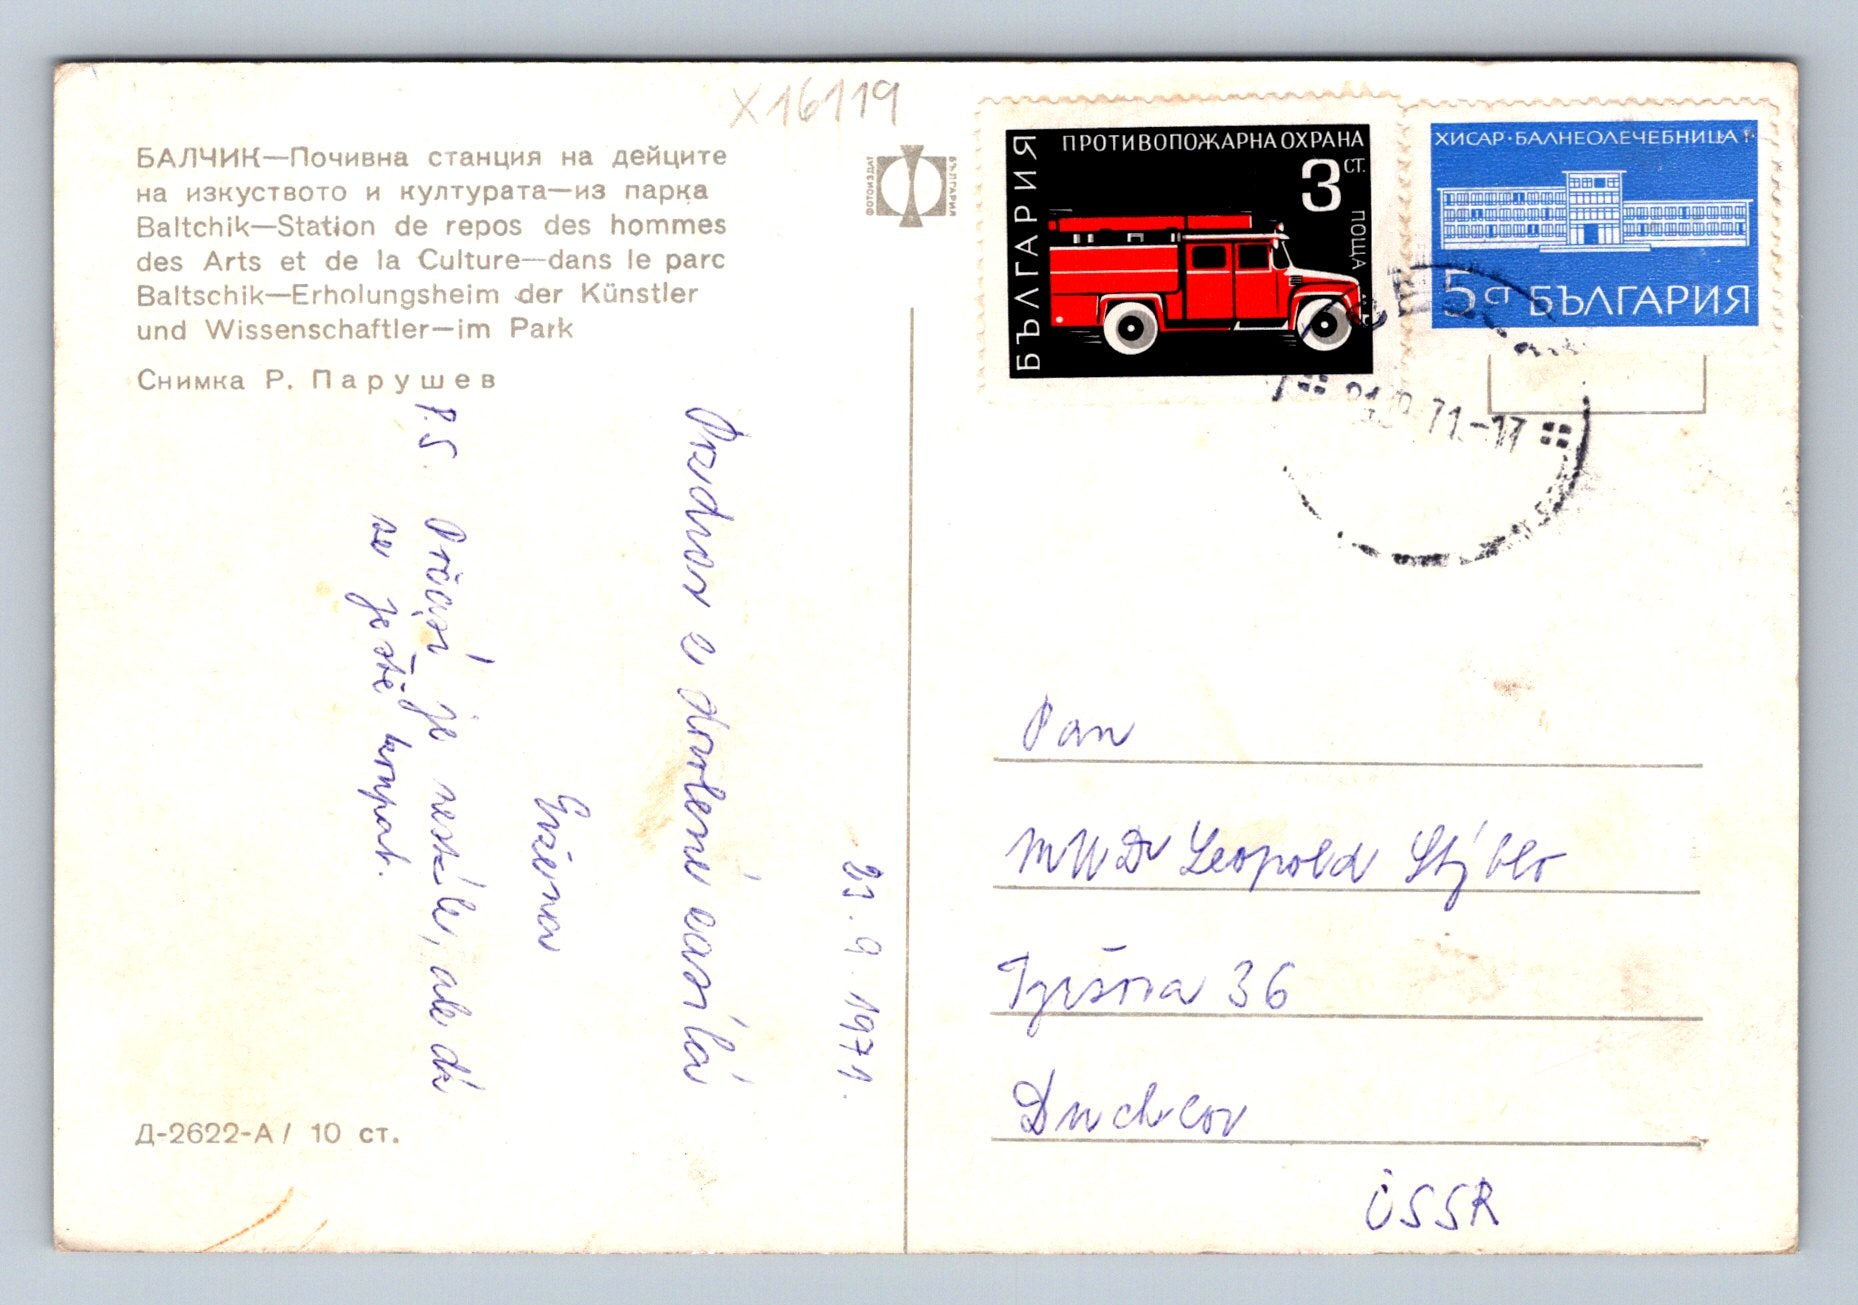 X16119
БАЛЧИК—Почивна станция на дейците
на изкуството и културата—из парка
Baltchik—Station de repos des hommes
des Arts et de la Culture—dans le parc
Baltschik—Erholungsheim der Künstler
und Wissenschaftler—im Park
Снимка Р. Парушев
ФОТОИЗДАТ
БЪЛГАРИЯ
23. 9. 1971.
z dovolené zasílá
P.S. Počasí je nestálé, ale dá
se ještě koupat.
Д-2622-А/ 10 ст.
ПРОТИВОПОЖАРНА ОХРАНА
3 СТ.
ПОЩА
БЪЛГАРИЯ
ХИСАР·БАЛНЕОЛЕЧЕБНИЦА
5 ст БЪЛГАРИЯ
71.-17
Pan
MUDr Leopold Stýblo
36
Duchcov
ČSSR